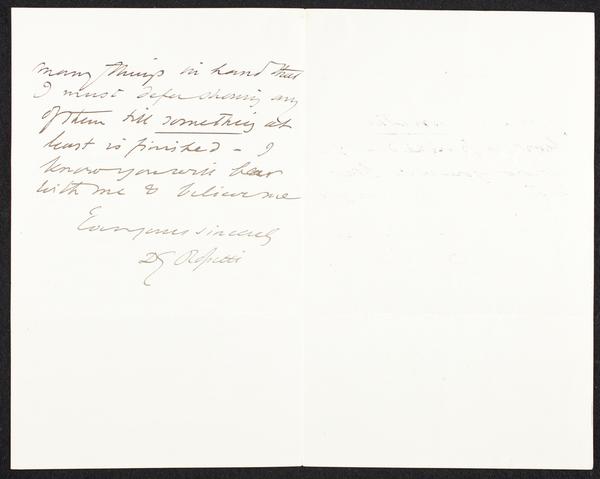 many things in hand that
I must defer showing any
of them till something at
least is finished – I
know you will bear
with me & believe me
Ever yours sincerely
DG Rossetti